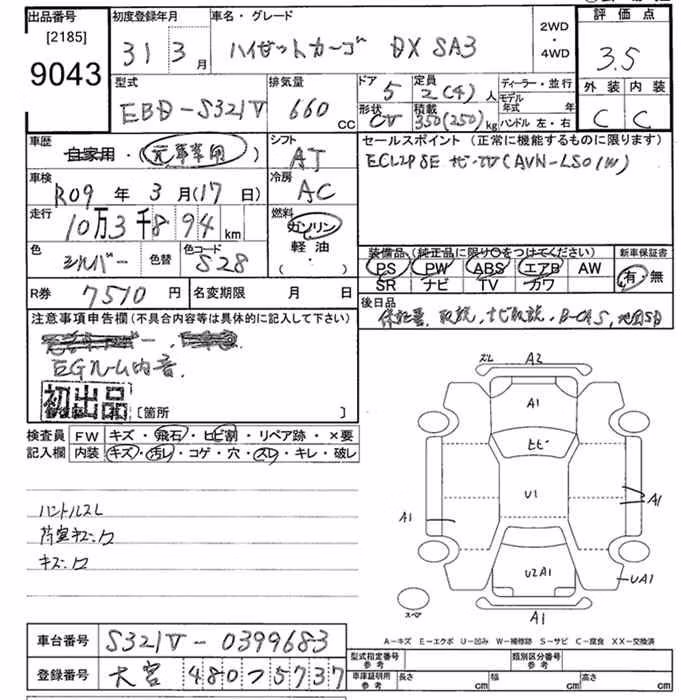 出品番号
[2185]
9043
初度登録年月
31 3月
車名・グレード
ハイゼットカーゴ DX SA3
2WD
・
4WD
評価点
3.5
外装 内装
C C
型式
EBD-S321V
排気量
660 cc
ドア
5
定員
2(4)人
形状
CV
積載
350(250)kg
ディーラー・並行
モデル
年式 年
ハンドル 左・右
車歴
自家用・(元事業用)
シフト
AT
セールスポイント (正常に機能するものに限ります)
車検
R09年3月(17日)
冷房
AC
走行
10万3千894km
燃料
ガソリン
軽油
( ・ )
色
シルバー
色替
色コード
S28
装備品 (純正品に限り○をつけてください)
PS PW ABS エアB AW
SR ナビ TV カワ
新車保証書
有・無
R券
7510円
名変期限 月 日
後日品
保証書、取説、ナビ取説、B-CAS、
注意事項申告欄 (不具合内容等は具体的に記入して下さい)
EGルーム内音
初出品
[箇所 ]
検査員
記入欄
FW キズ・飛石・ヒビ割・リペア跡・×要
内装 キズ・汚レ・コゲ・穴・スレ・キレ・破レ
ハンドルスレ
キズ・ワ
スレ A2
A1
ヒビ
U1
A1
A1
U2A1
UA1
スペア
A1
A-キズ E-エクボ U-凹み W-補修跡 S-サビ C-腐食 XX-交換済
車台番号
S321V-0399683
登録番号
大宮 480 つ 5737
型式指定番号
参考
類別区分番号
参考
車庫証明用
参考
長さ cm
幅 cm
高さ cm